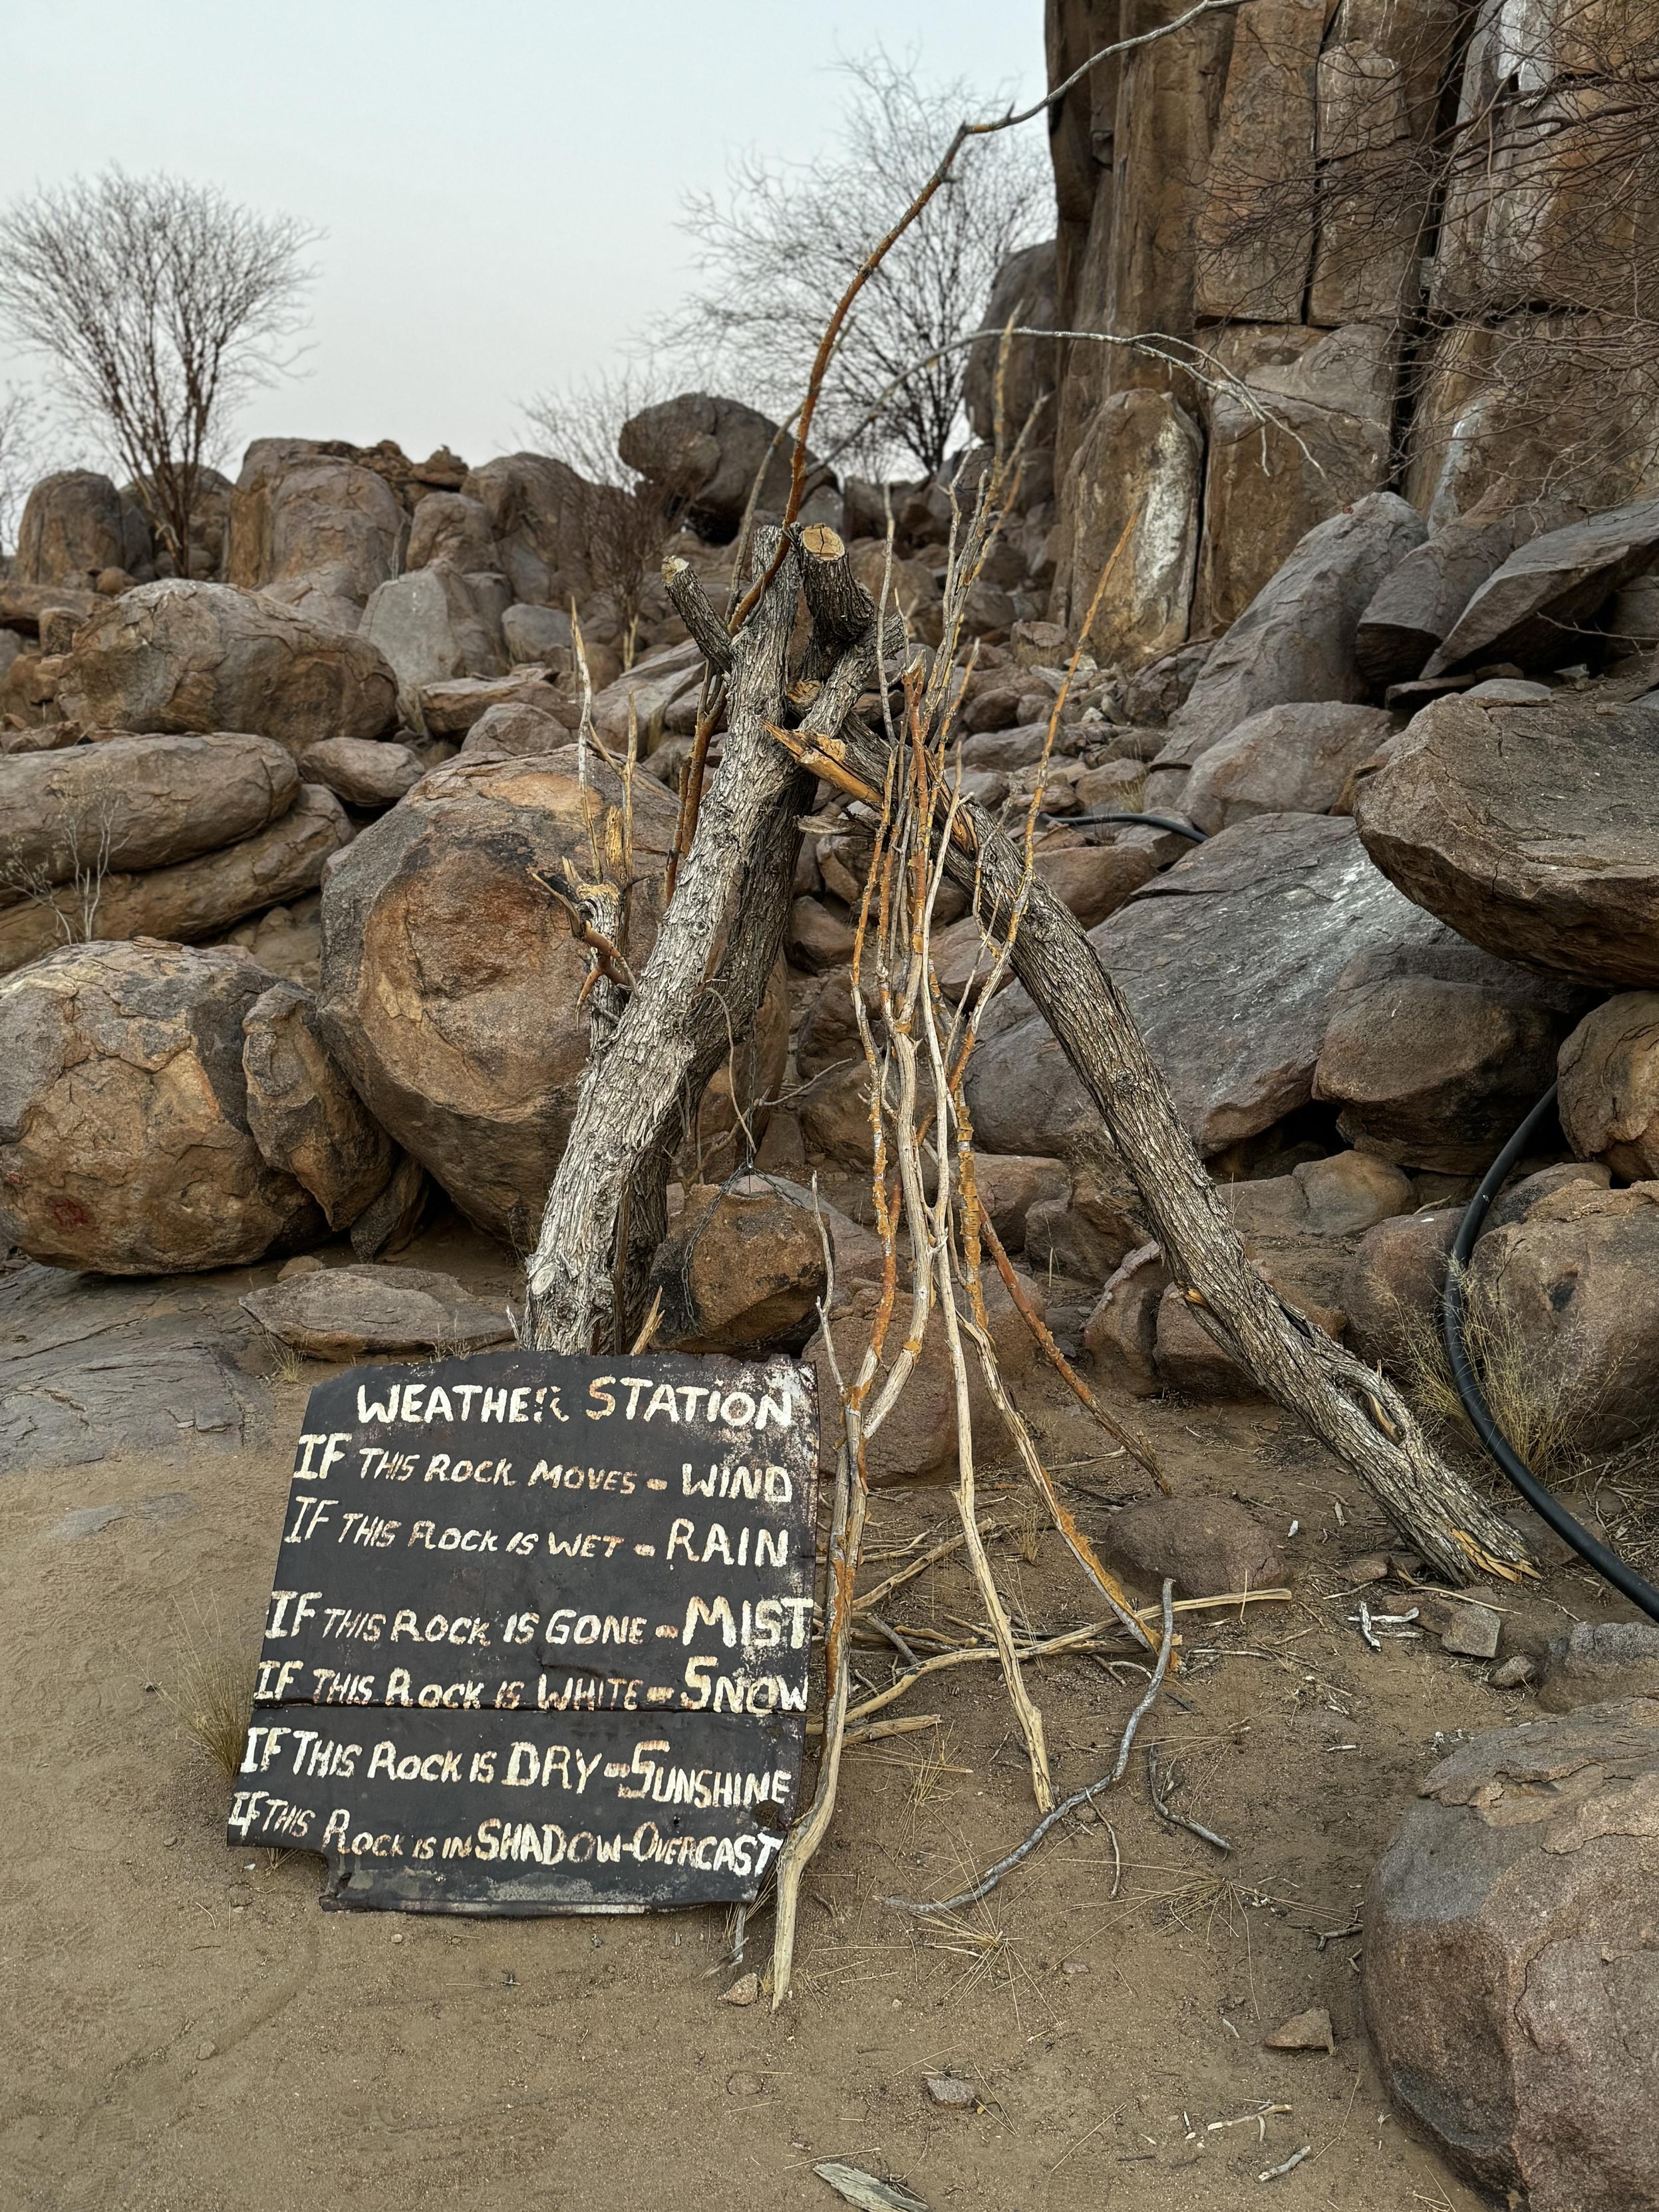 WEATHER STATION
IF THIS ROCK MOVES - WIND
IF THIS ROCK IS WET - RAIN
IF THIS ROCK IS GONE - MIST
IF THIS ROCK IS WHITE - SNOW
IF THIS ROCK IS DRY - SUNSHINE
IF THIS ROCK IS IN SHADOW - OVERCAST